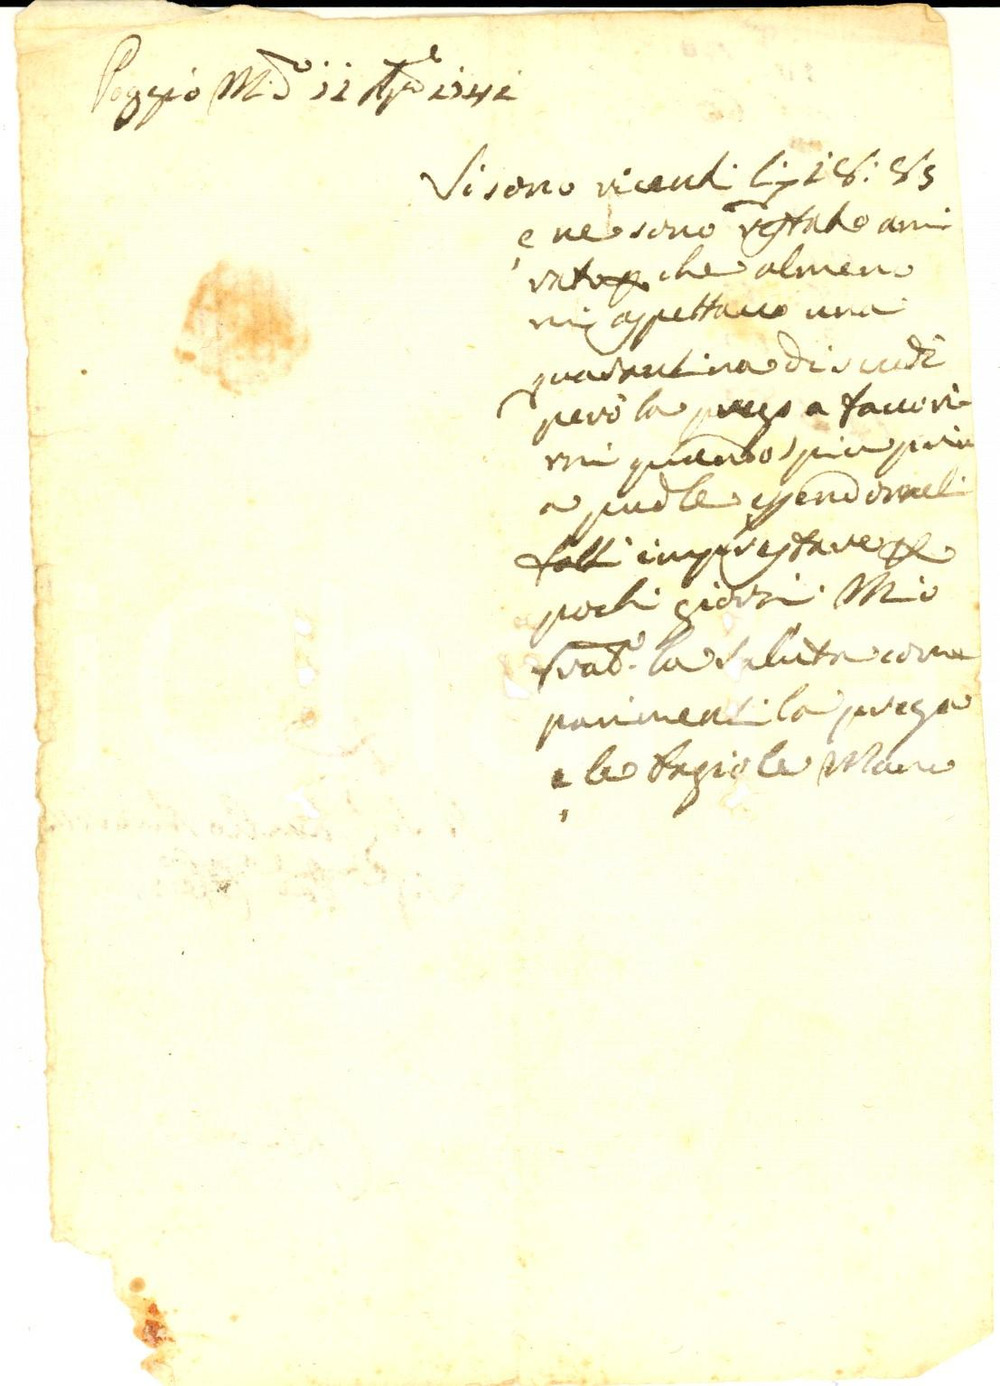 Poggio M.do 12 Ap.le 1741
Si sono ricenti li 18: 85
e ne sono restato ami
rato che almeno
mi aspettavo una
quarantina di scudi
però la prego a favori
rmi quando più pri
a può le essendomeli
fatti imprestare per
pochi giorni. Mio
Frad.o la saluta come
parimenti la prega
e le bagio le Mane